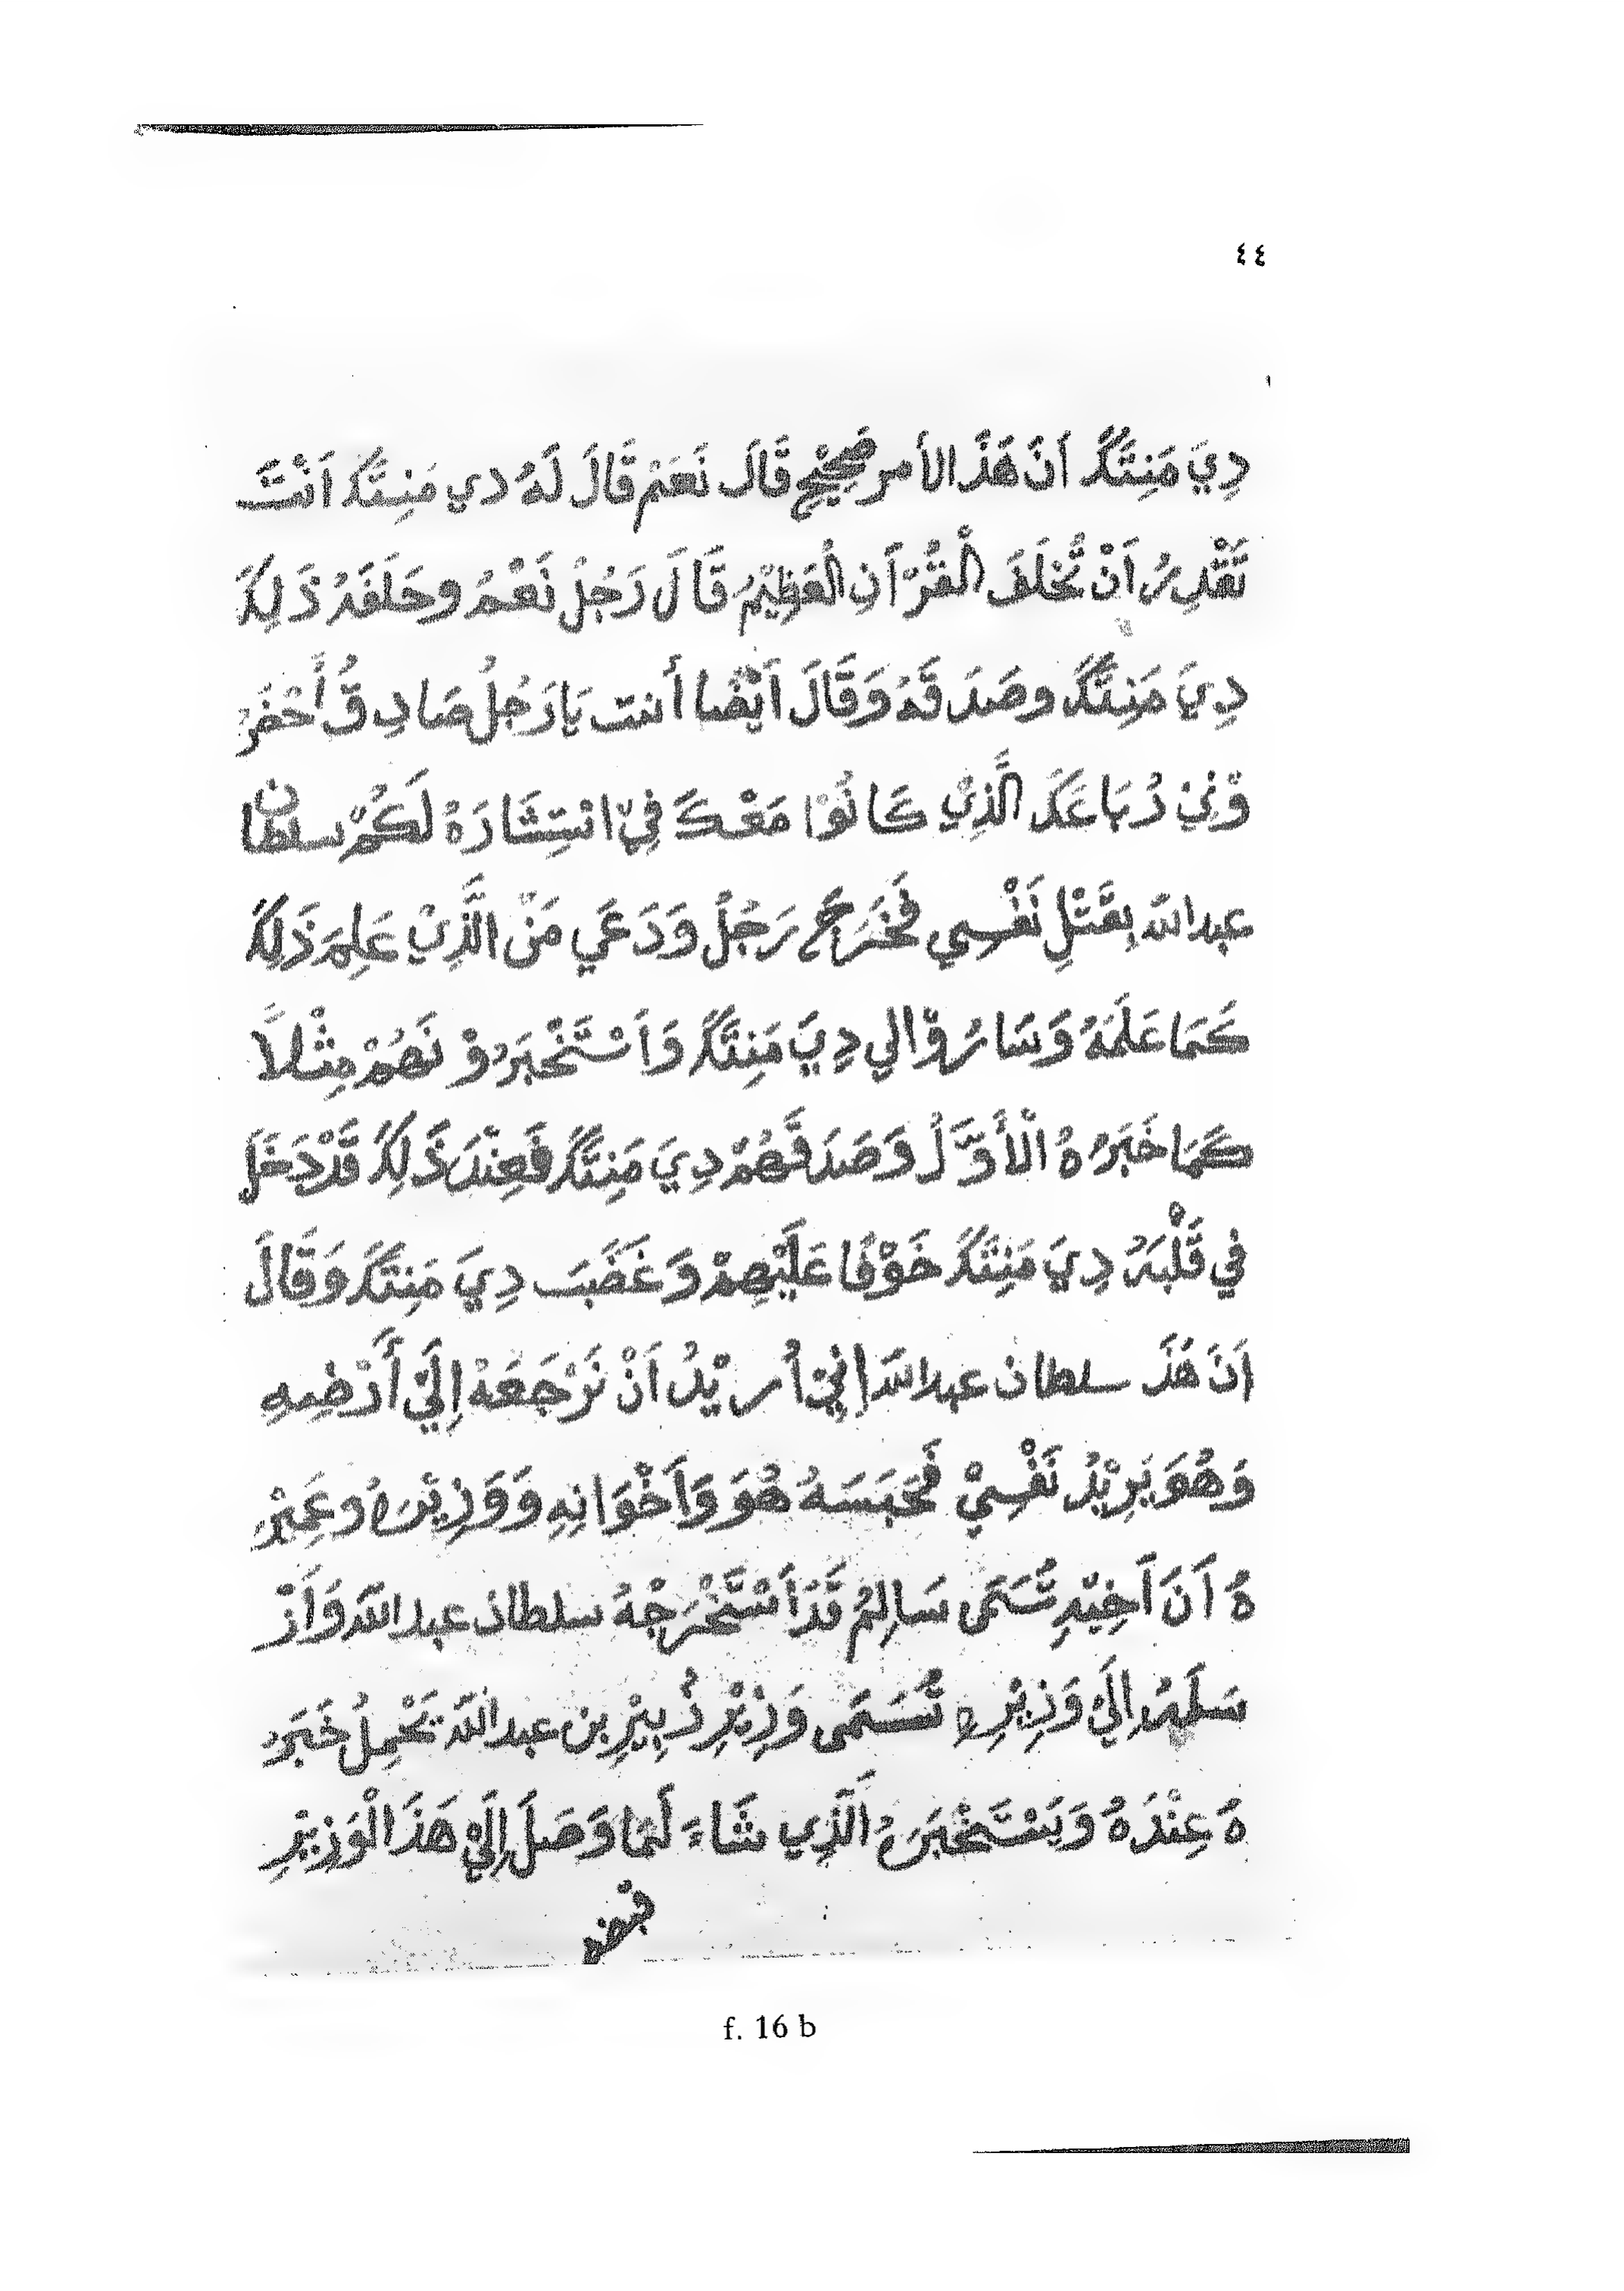 ٤٤
دِيَ مَنِتَّكَ اَنَ هَذَا الأمر صَحِيْحٍ قَالَ نَعَمْ قَالَ لَهُ دي مَنِتَّكَ اَنْتَ
تَقْدِرُ اَنْ تُّخلَفَ الْقُرْآَنِ الْعَظِيْمُ قَالَ رَجُلُ نَعْمُ وحَلَفَهُ ذَلِكَ
دِيَ مَنِتَّكَ وصَدَقَهُ وَقَالَ اَيْضًا أنت يَا رَجُلُ صَادِقُ أَحْضَرُ
وْنِيْ رُبَاعَكَ الَّذِيْ كَانُوْا مَعْكَ فِيْ انْتِشَارَهْ لَكُمْ سلطان
عبدالله بِقَتْلِ نَفْسِي فَخَرَجَ رَجُلُ وَدَعَي مَنْ الَّذِيْ عَلِمَ ذَلِكَ
كَمَا عَلَمَهُ وَسَارُوْا لي دِيَ مَنِتَّكَ وَاَسْتَخْبَرُوْ نَهُمْ مِثْلاً
كَمَا خَبَرُهُ الْأَوَّلُ وَصَدَقَهُمْ دِيَ مَنِتَّكَ فَعِنْدَ ذَلِكَ قَدْ دَخَلَ
في قَلْبَهُ دِيَ مَنِتَكَ خَوْفًا عَلَيْهِمْ وَغَضَبَ دِيَ مَنِتَكَ وَقَالَ
اَنَ هَذَ سلطان عبدالله اِنِيْ اُريْدُ اَنْ نَرْجَعَهْ اِلَيّ أَرْضِهِ
وَهُوَ يَرِيْدُ نَفْسِيْ فَحَبَسَهُ هُوَ وَاَخْوَانِهِ وَوَزِيْرَهُ وعَمِيْرُ
هُ اَنَ اَخِيّهِ تُسَمَى سَالِمُ قَدْ اَسْتَخْرَجْهُ سلطان عبدالله وَاَرْ
سَلَهُ اِلَيْ وَزِيْرِهِ تُسَمَى وَزِيْرِ زُبِيْرِ بن عبدالله يَحْمِلُ خَبَرُ
هُ عِنْدَهُ وَيَسْتَخْبَرَهُ الَّذِي شَاءَ لَمَا وَصَلَ اِلَيْ هَذَا الْوَزِيْرِ
قبضه
f. 16 b